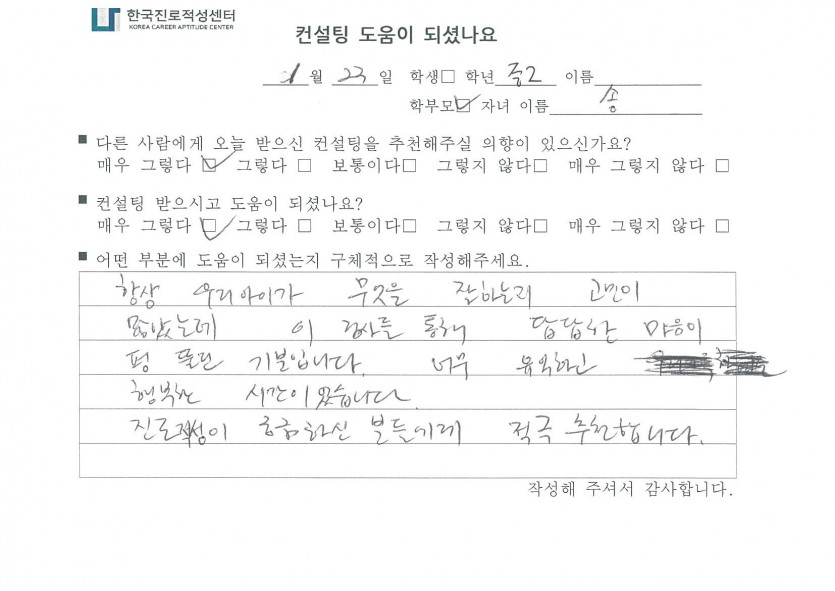 한국진로적성센터
KOREA CAREER APTITUDE CENTER
컨설팅 도움이 되셨나요
1월 23일 학생□ 학년 중2 이름
학부모☑ 자녀 이름 송
■ 다른 사람에게 오늘 받으신 컨설팅을 추천해주실 의향이 있으신가요?
매우 그렇다 ☑ 그렇다 □ 보통이다□ 그렇지 않다□ 매우 그렇지 않다 □
■ 컨설팅 받으시고 도움이 되셨나요?
매우 그렇다 ☑ 그렇다 □ 보통이다□ 그렇지 않다□ 매우 그렇지 않다 □
■ 어떤 부분에 도움이 되셨는지 구체적으로 작성해주세요.
항상 우리아이가 무엇을 잘하는지 고민이
많았는데 이 검사를 통해 답답한 마음이
펑 뚫린 기분입니다. 너무 유익하신
행복한 시간이었습니다.
진로적성이 궁금하신 분들에게 적극 추천합니다.
작성해 주셔서 감사합니다.